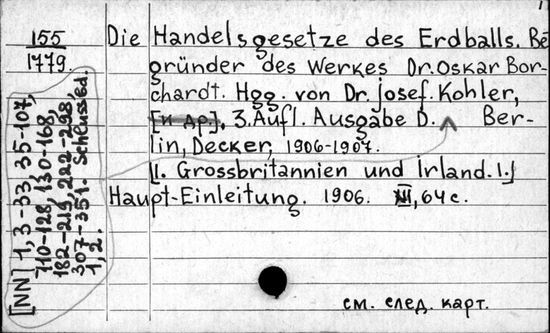 155
1779
Die Handelsgesetze des Erdballs. Be-
gründer des Werkes Dr. Oskar Bor-
chardt. Hgg. von Dr. Josef. Kohler,
[и др], 3. Aufl. Ausgabe D. Ber-
lin, Decker, 1906-1907.
[1. Grossbritannien und Irland. 1.]
Haupt-Einleitung. 1906. XII, 64 с.
см. след. карт.
[NN] 1, 3-33, 35-107,
110-128, 130-168,
182-219, 222-298,
307-351. Schlussbd.
1, 2.